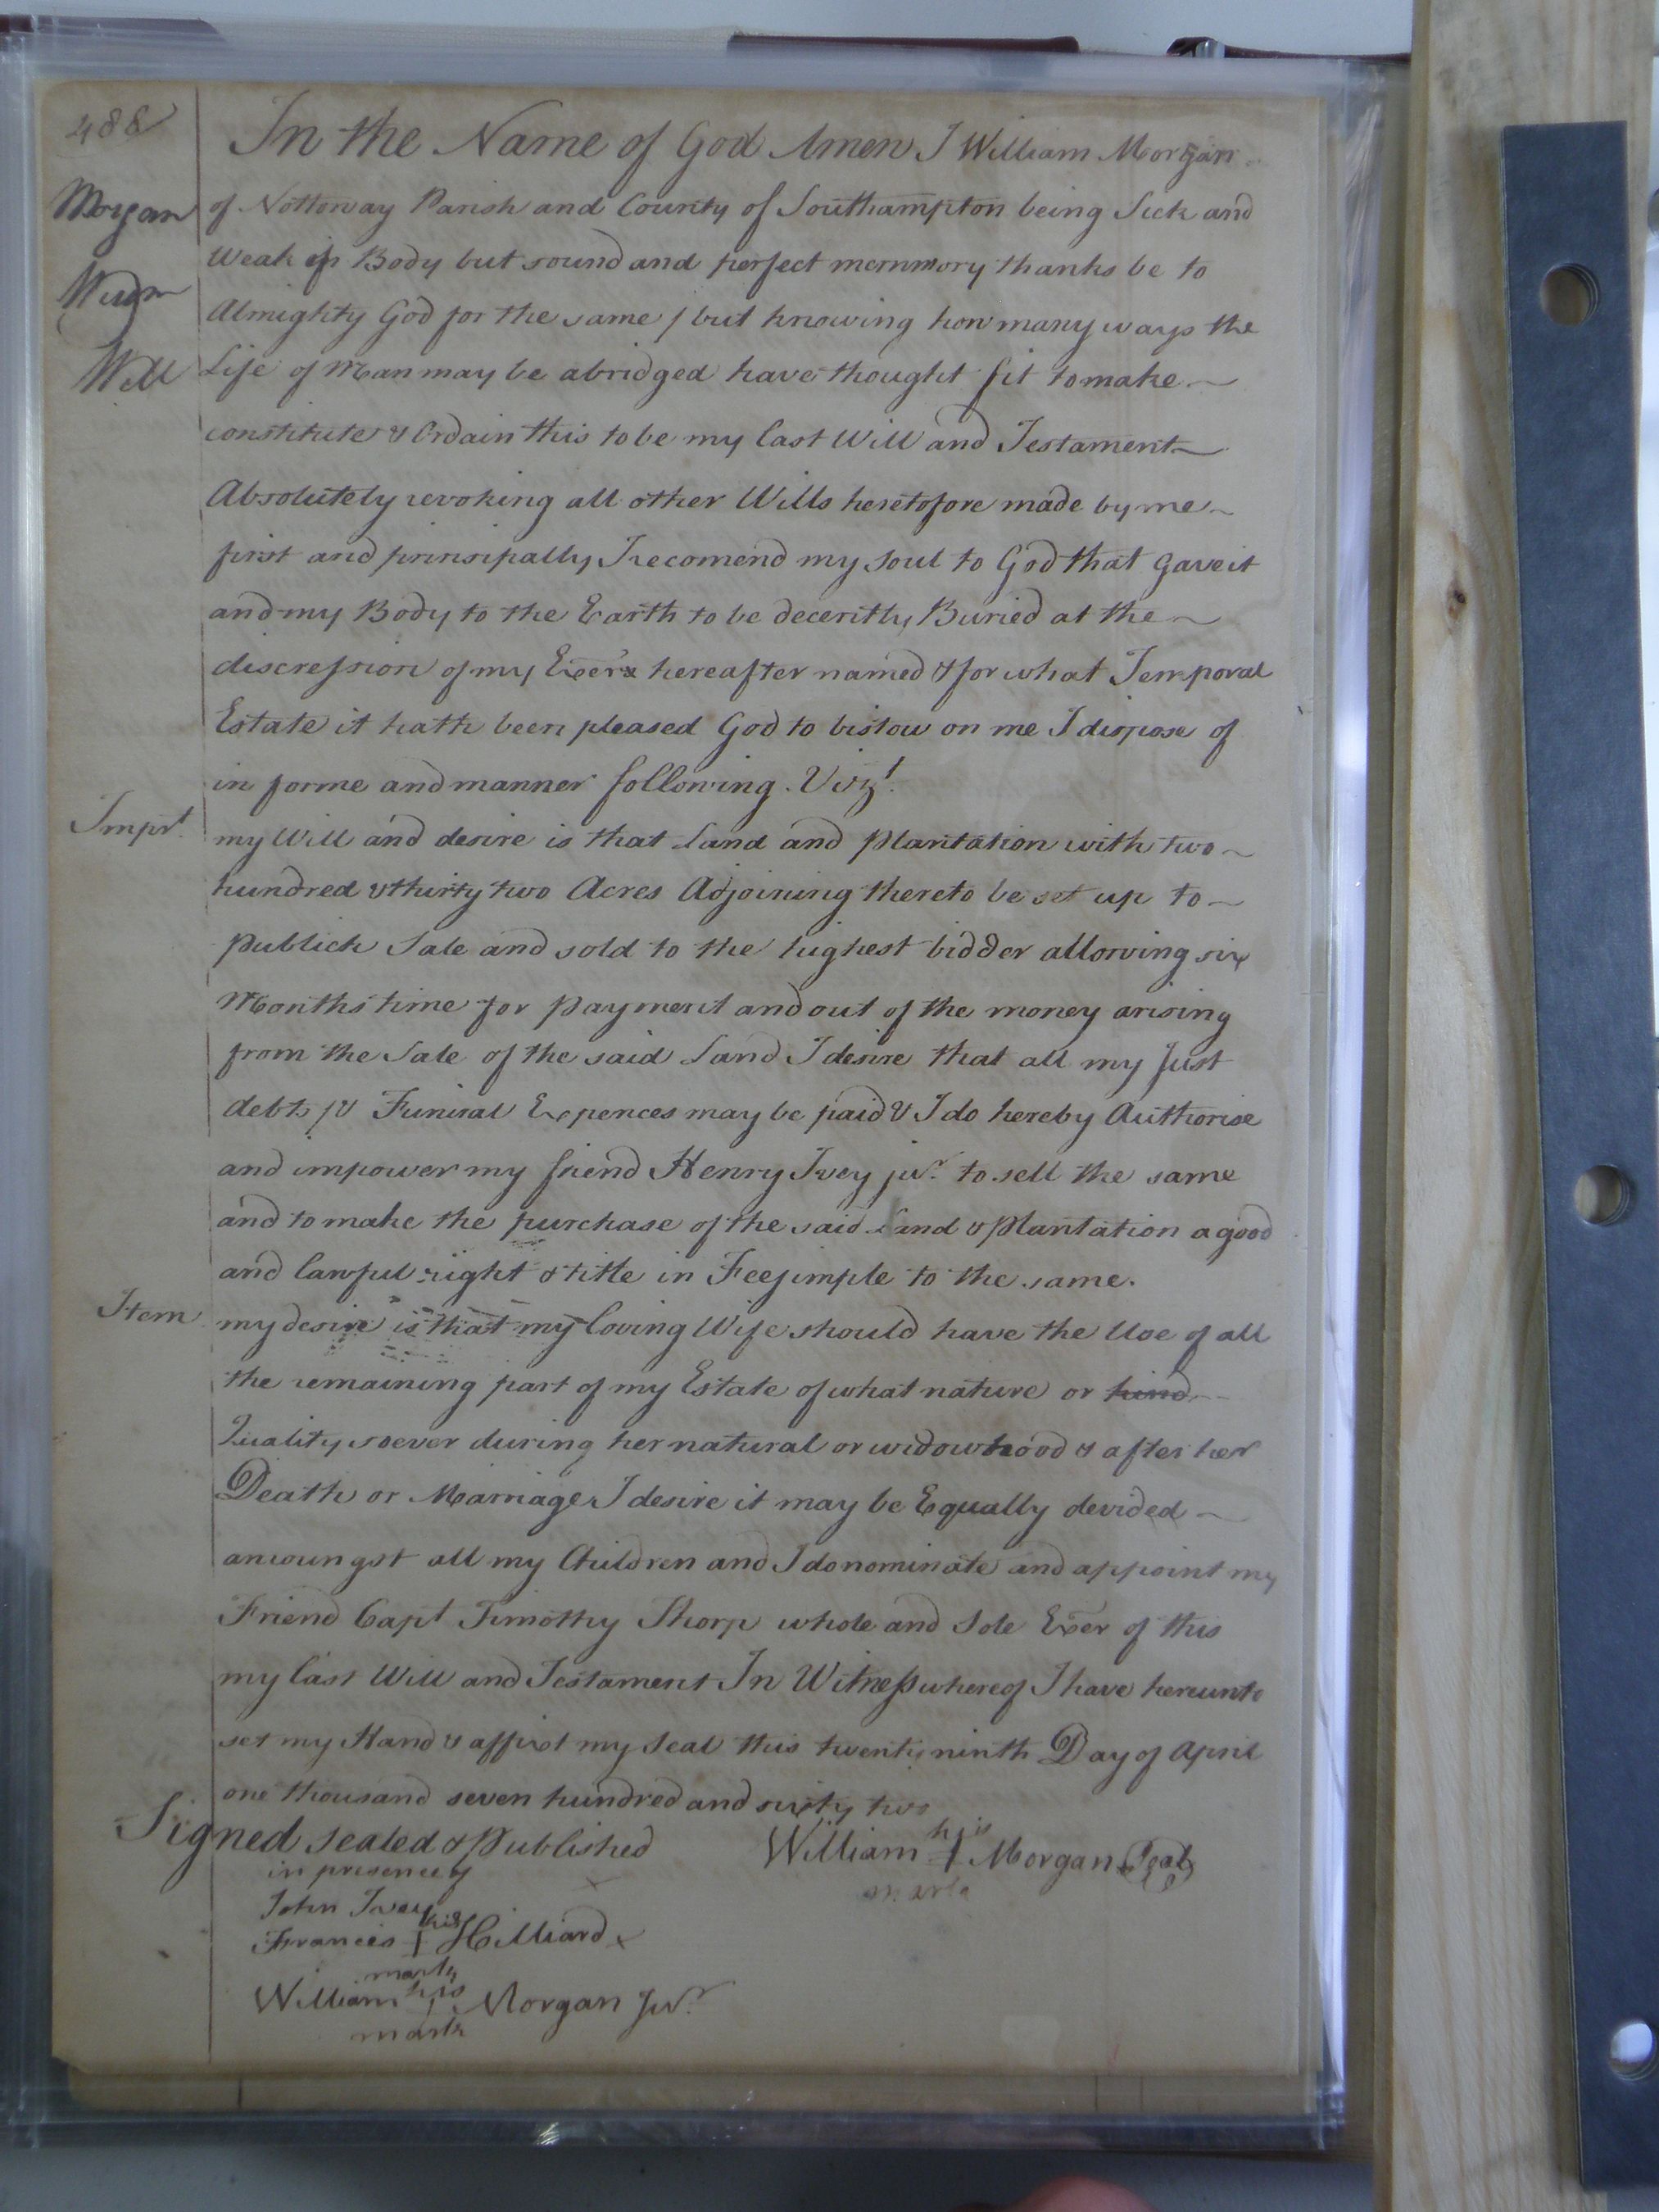 488
In the Name of God Amen I William Morgan
Morgan
of Nottoway Parish and County of Southampton being Sick and
weak in Body but sound and perfect memmory thanks be to
Willm
Almighty God for the same / but knowing how many ways the
Will
Life of Man may be abridged have thought fit to make
constitute & Ordain this to be my last Will and Testament
Absolutely revoking all other Wills heretofore made by me
first and prinsipally I recomend my Soul to God that gave it
and my Body to the Earth to be decently Buried at the
discression of my Exers hereafter named & for what Temporal
Estate it hath been pleased God to bistow on me I dispose of
in forme and manner following. Vizt.
Imprt.
my Will and desire is that Land and Plantation with two
hundred & thirty two Acres Adjoining thereto be set up to
Publick Sale and sold to the highest bidder allowing six
Months time for Payment and out of the money arising
from the Sale of the said Land I desire that all my Just
debts / & Funiral Expences may be paid & I do hereby Authorise
and impower my friend Henry Ivey junr. to sell the same
and to make the purchase of the said Land & Plantation a good
and lawful right & title in Feesimple to the same.
Item
my desire is that my loving Wife should have the Use of all
the remaining part of my Estate of what nature or kind
Quality soever during her natural or widowhood & after her
Death or Marriage I desire it may be Equally devided
amoungst all my Children and I do nominate and appoint my
Friend Capt Timothy Thorp whole and Sole Exer of this
my last Will and Testament In Witness whereof I have hereunto
set my Hand & affixt my Seal this twenty ninth Day of April
one thousand seven hundred and sixty two
Signed sealed & Published
in presence of
his
William + Morgan Seal
mark
John Ivey
his
Francis + Hilliard
mark
his
William + Morgan Junr.
mark